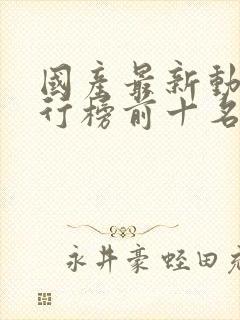 國産最新動
行榜前十名
永井豪蛭田充